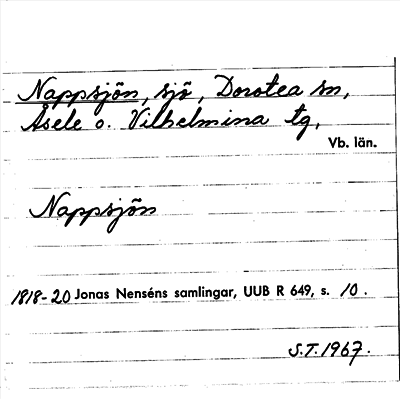 Nappsjön, sjö, Dorotea sn,
Åsele o. Vilhelmina tg,
Vb. län.
Nappsjön
1818-20 Jonas Nenséns samlingar, UUB R 649, s. 10.
S.T. 1967.